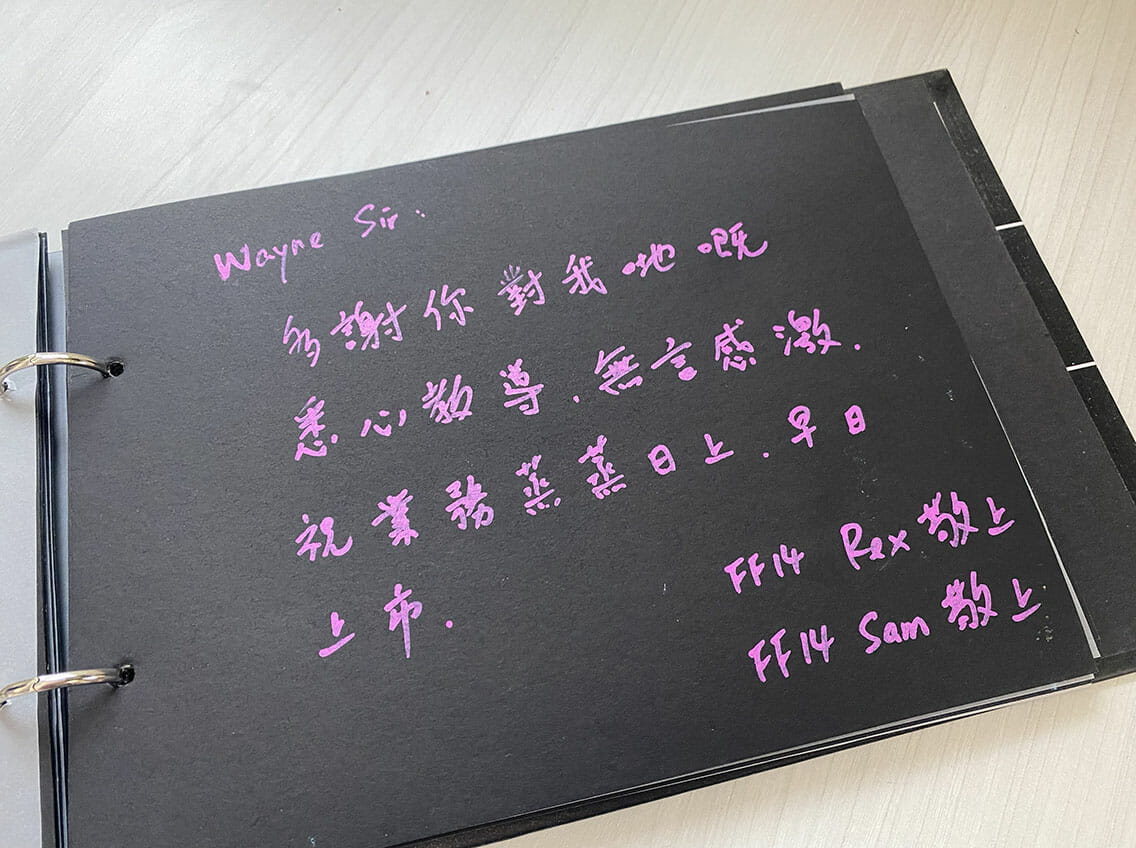 Wayne Sir:
多謝你對我哋嘅
悉心教導.無言感激.
祝業務蒸蒸日上.早日
上市.
FF14 Rex敬上
FF14 Sam敬上